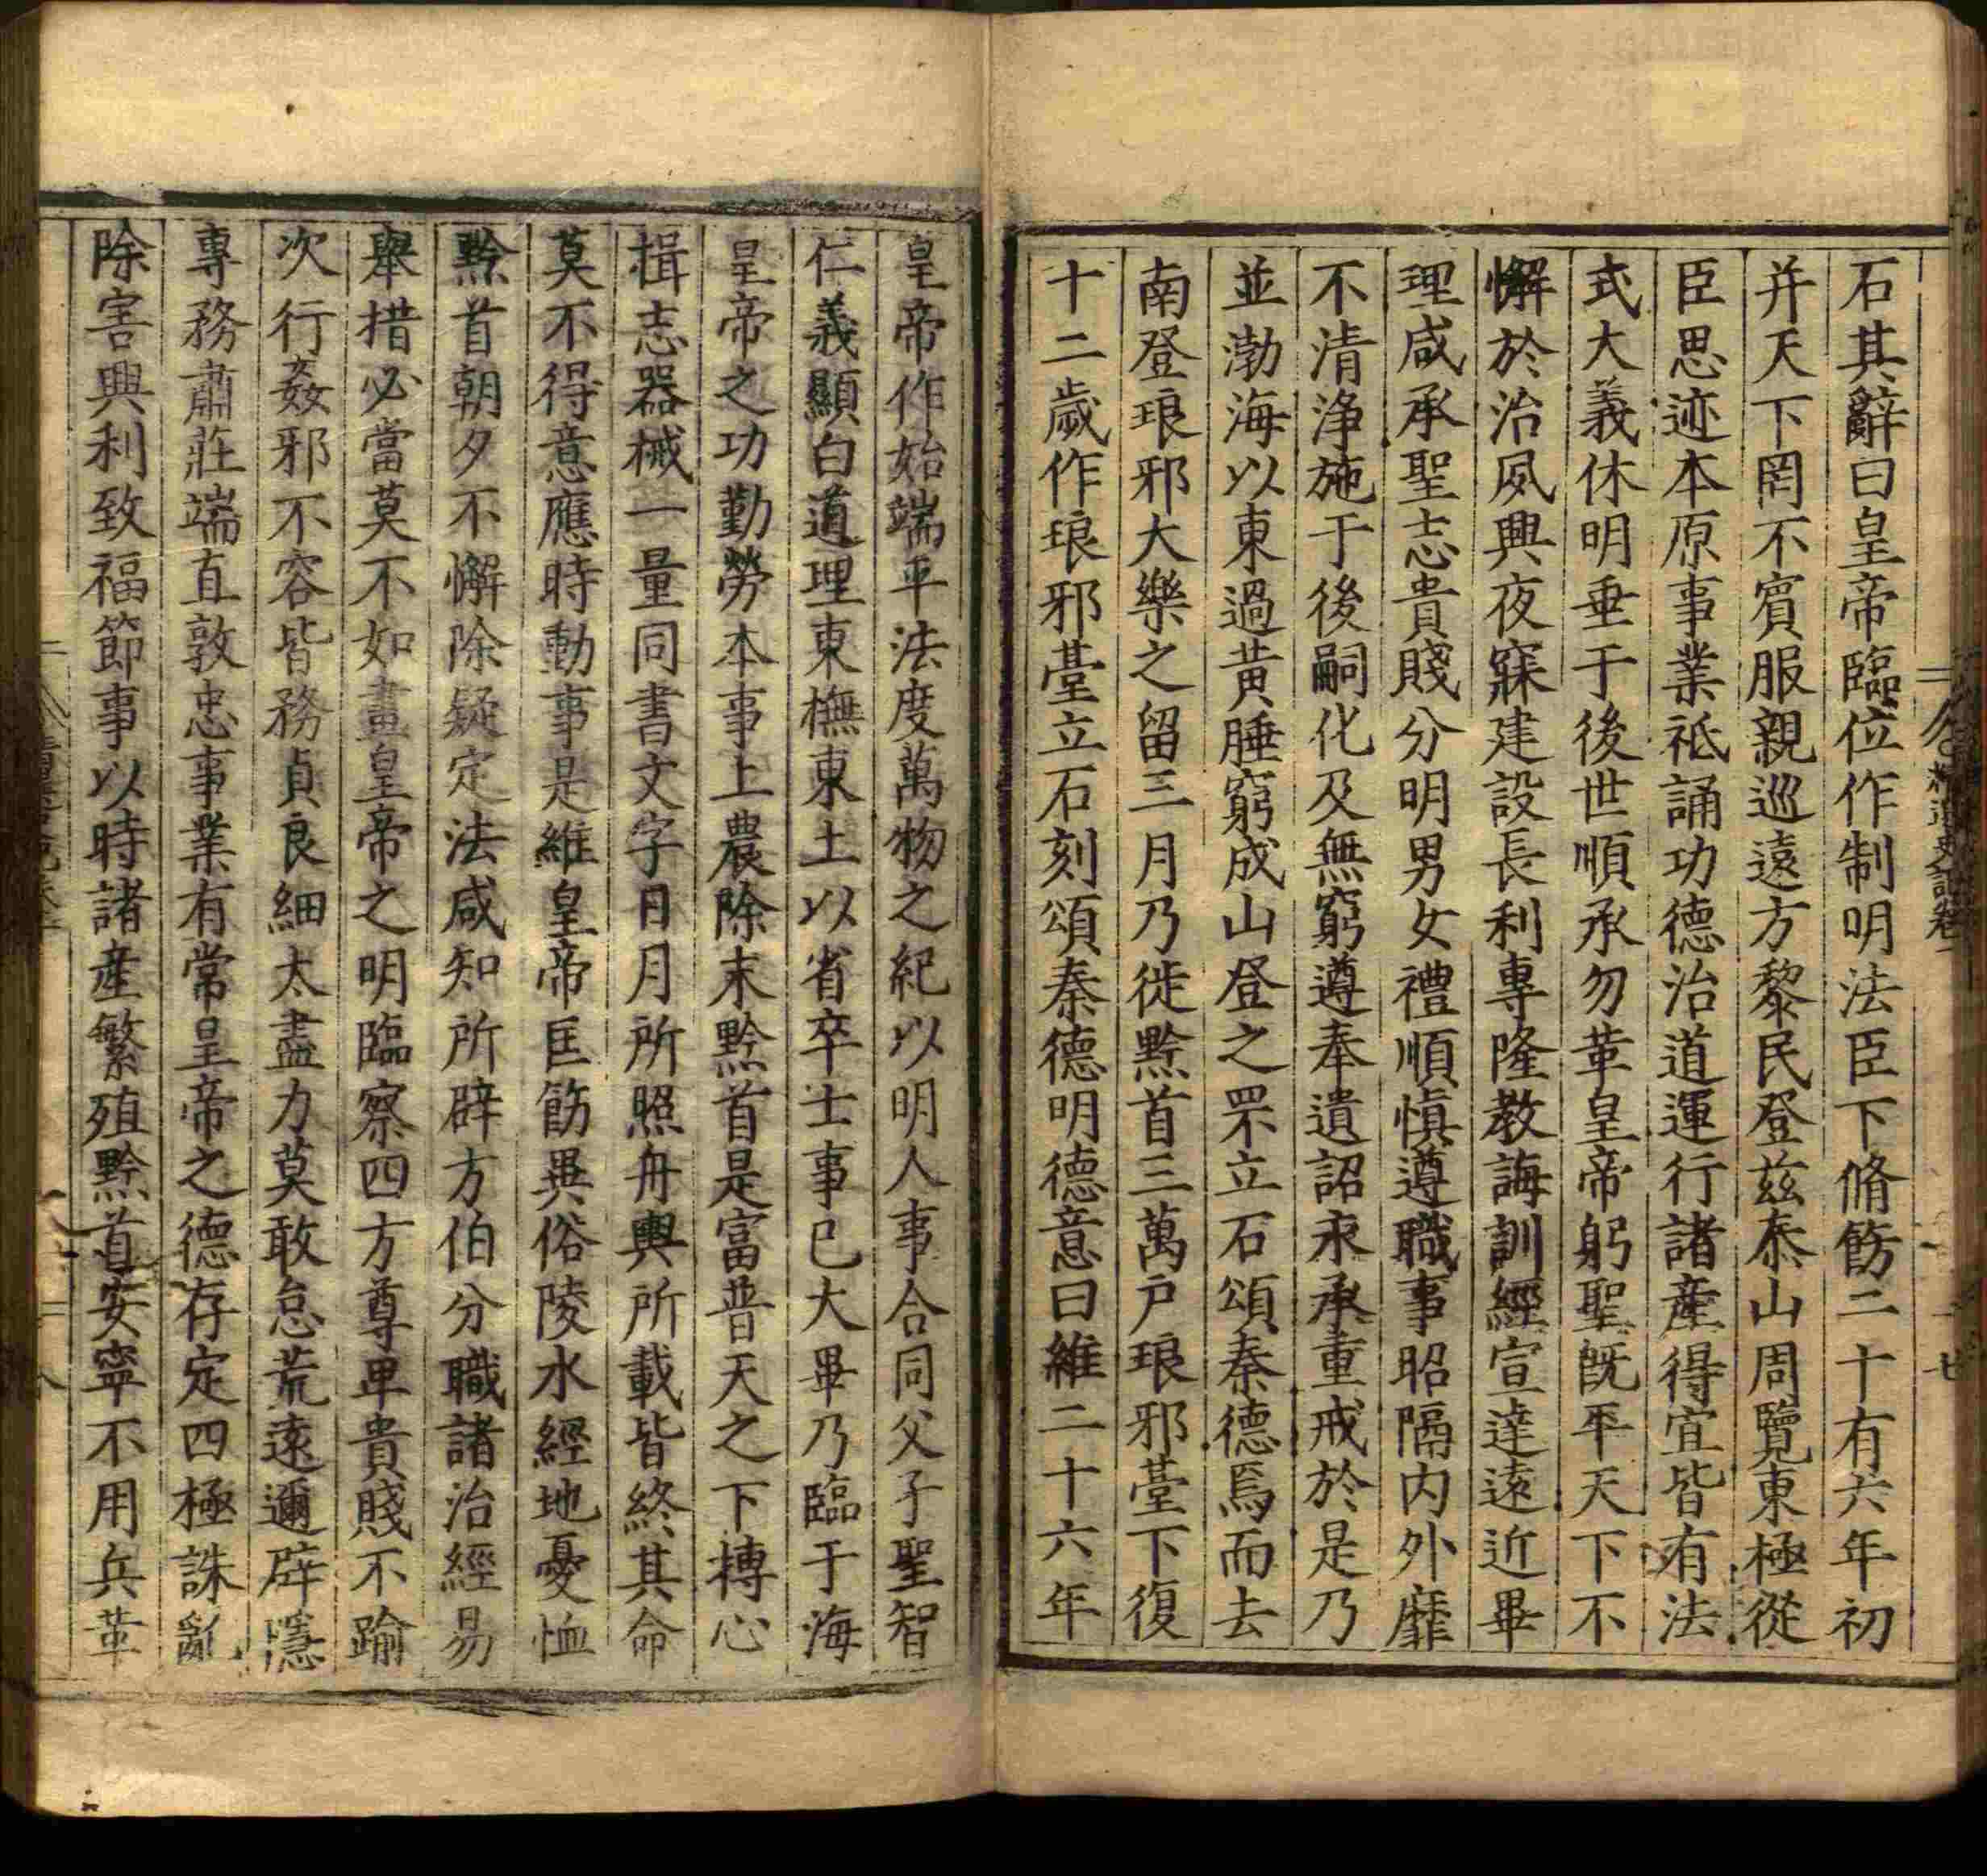 石其辭曰皇帝臨位作制明法臣下脩飭二十有六年初
并天下罔不賓服親巡遠方黎民登茲泰山周覽東極從
臣思迹本原事業祗誦功德治道運行諸產得宜皆有法
式大義休明垂于後世順承勿革皇帝躬聖既平天下不
懈於治夙興夜寐建設長利專隆教誨訓經宣達遠近畢
理咸承聖志貴賤分明男女禮順慎遵職事昭隔內外靡
不清淨施于後嗣化及無窮遵奉遺詔永承重戒於是乃
並渤海以東過黃腄窮成山登之罘立石頌秦德焉而去
南登琅邪大樂之留三月乃徙黔首三萬户琅邪臺下復
十二歲作琅邪臺立石刻頌秦德明德意曰維二十六年
皇帝作始端平法度萬物之紀以明人事合同父子聖智
仁義顯白道理東撫東土以省卒士事已大畢乃臨于海
皇帝之功勤勞本事上農除末黔首是富普天之下摶心
揖志器械一量同書文字日月所照舟輿所載皆終其命
莫不得意應時動事是維皇帝匡飭異俗陵水經地憂恤
黔首朝夕不懈除疑定法咸知所辟方伯分職諸治經易
舉措必當莫不如畫皇帝之明臨察四方尊卑貴賤不踰
次行姦邪不容皆務貞良細大盡力莫敢怠荒遠邇辟隱
專務肅莊端直敦忠事業有常皇帝之德存定四極誅亂
除害興利致福節事以時諸產繁殖黔首安寧不用兵革